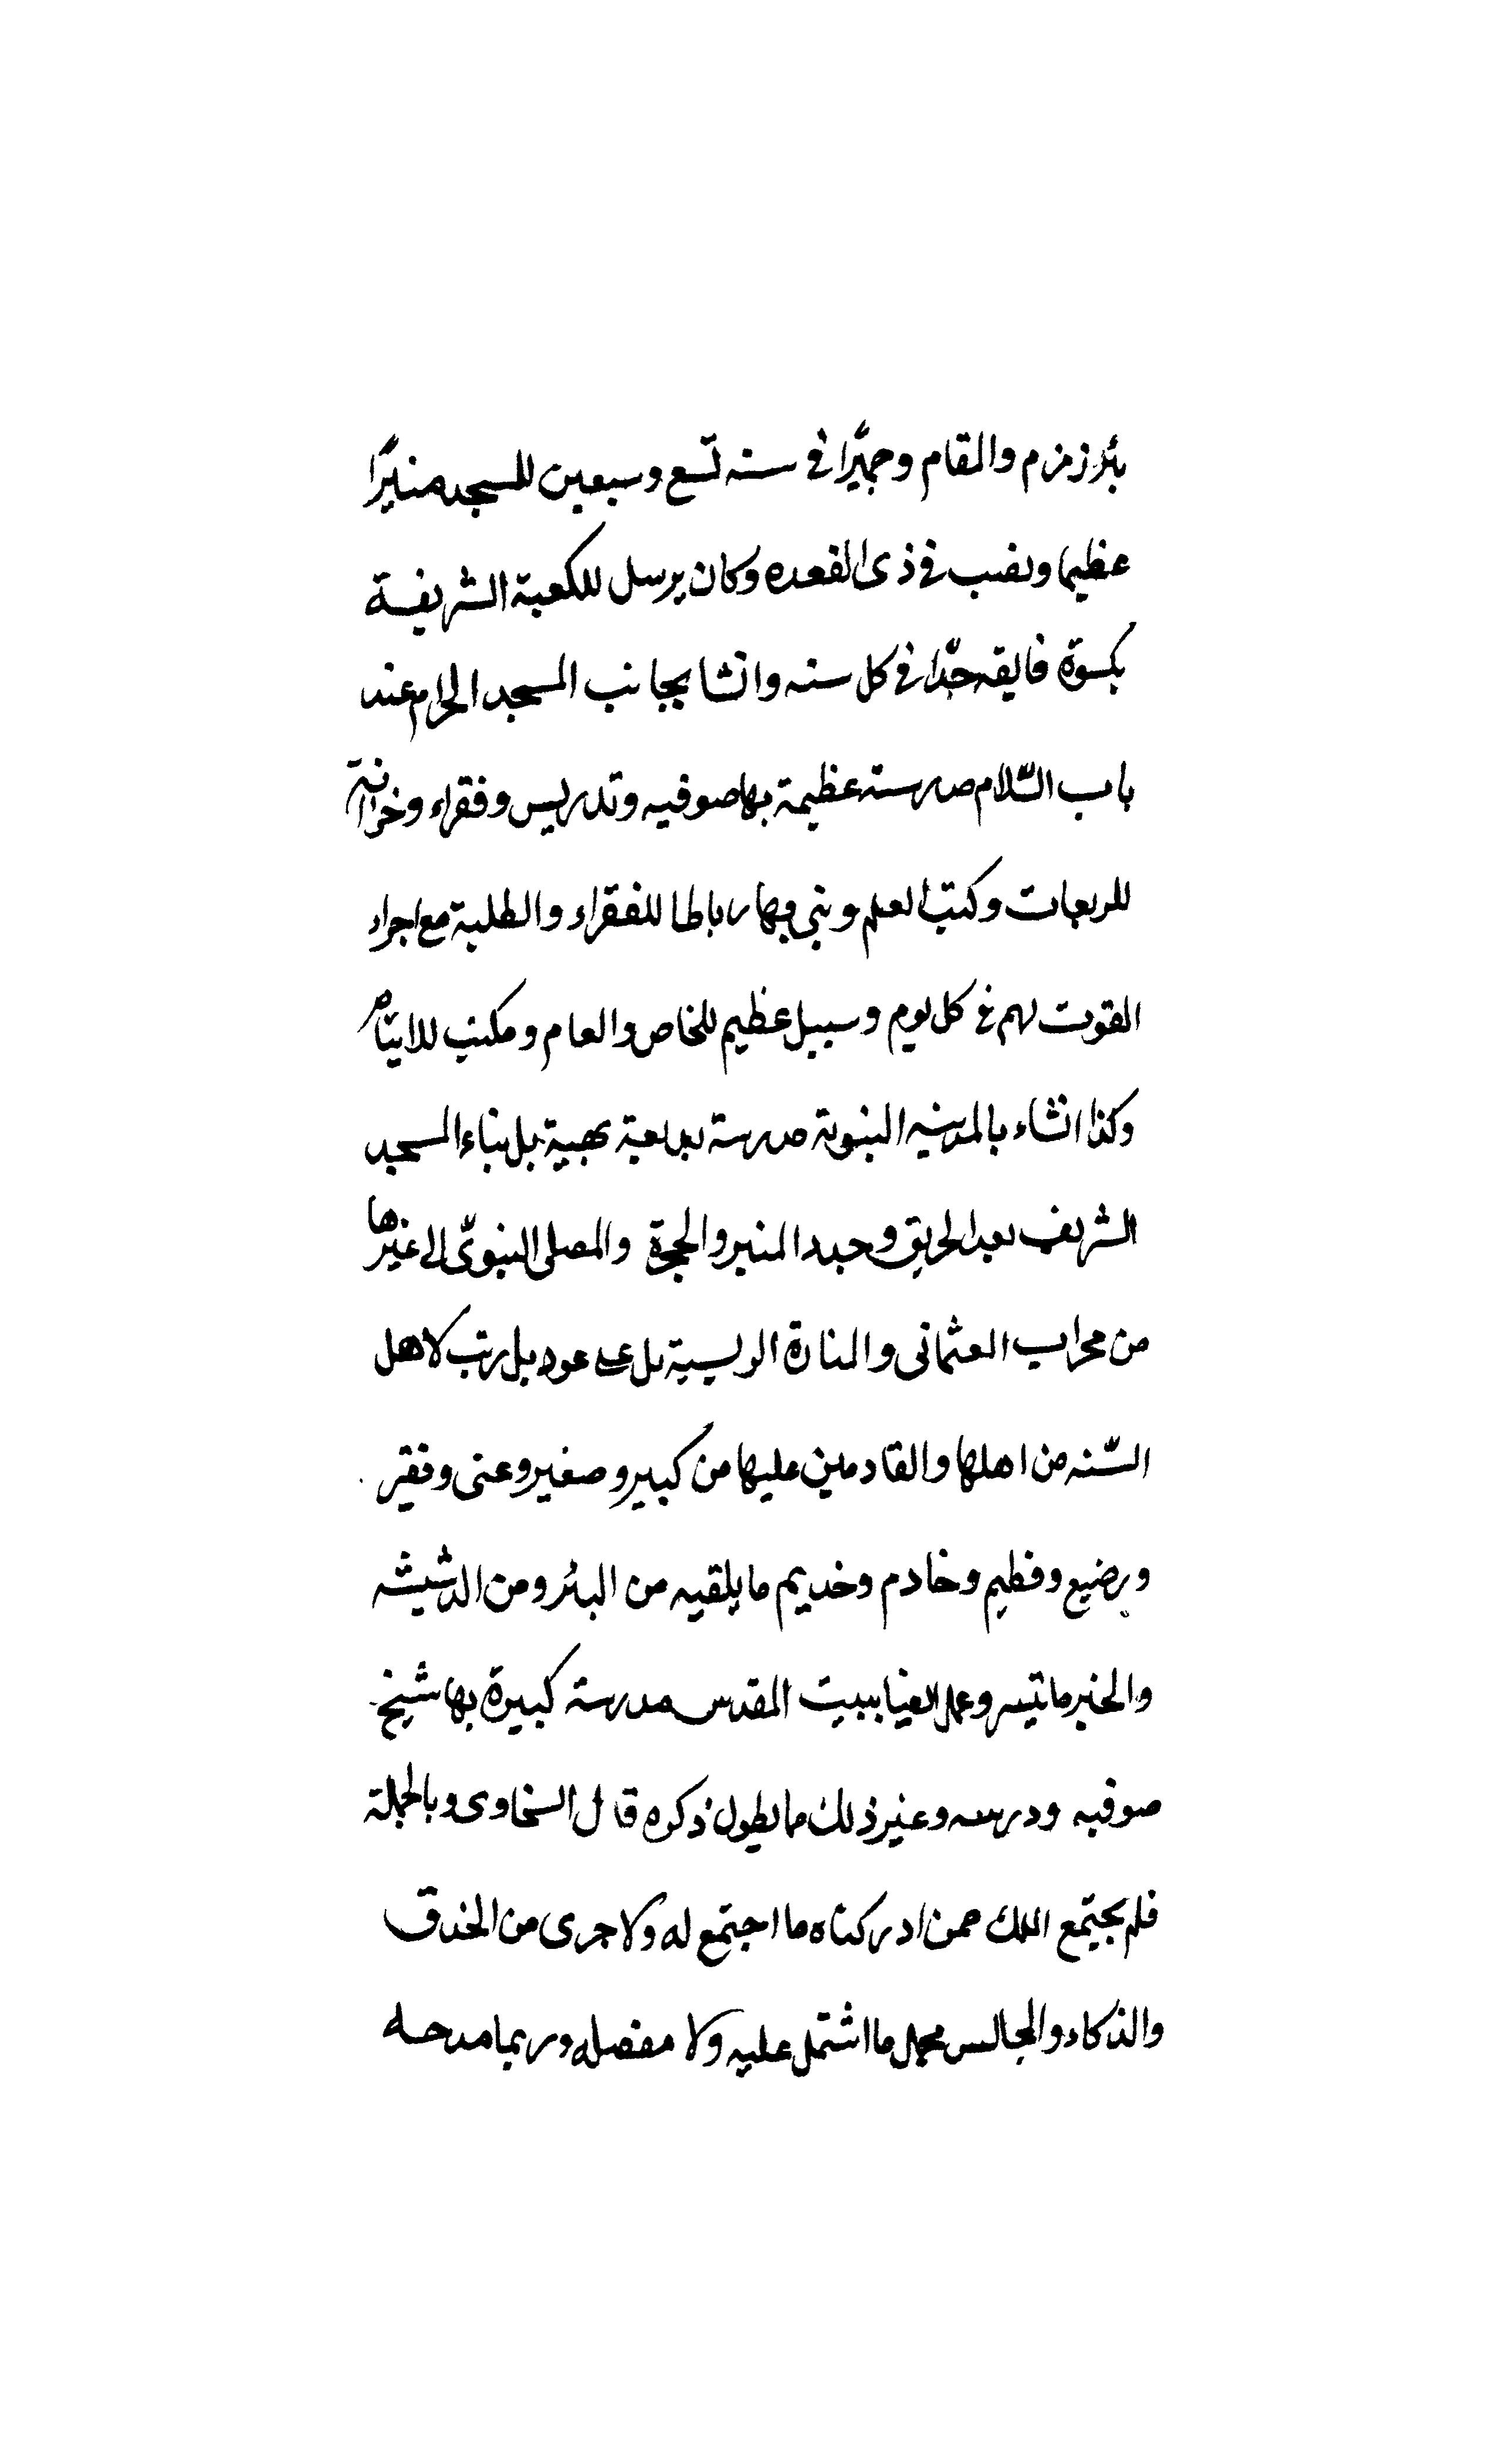 بئر زمزم والمقام وجهّزا في سنه تسع وسبعين للمسجد منبرًا
عظيما ونصب في ذى القعده وكان يرسل للكعبة الشريفة
بكسوة فايقه جدّا في كل سنه وانشا بجانب المسجد الحرام عند
باب السّلام مدرسته عظيمة بها صوفيه وتدريس وفقراء وخزانة
للربعات وكتب العلم وبنى بها رباطا للفقراء والطلبة مع اجراء
القوت لهم في كل يوم وسبيل عظيم للخاص والعام ومكتب للايتام
وكذا انشاء بالمدينه النبوية مدرسة بديعة بهية بل بناء المسجد
الشريف بعد الحريق وجدد المنبر والحجرة والمصلى النبوىّ الى غيرها
من محراب العثمانى والمنارة الريسية بل عود بل رتب لاهل
السّنه من اهلها والقادمين عليها من كبير وصغير وغنى وفقير
ورضيع وفطيم وخادم وخديم ما يلقيه من البئر ومن الدشيشه
والخبز ما تيسر وعمل ايضا ببيت المقدس مدرسة كبيرة بها شيخ
صوفيه ودرسه وغير ذلك ما يطول ذكره قال السخاوى وبالجملة
فلم يجتمع الملك ممن ادركناه ما اجتمع له ولا جرى من الخدق
والذكاء والمجالس مجمل ما اشتمل عليه ولا مفصله وربما مدحه